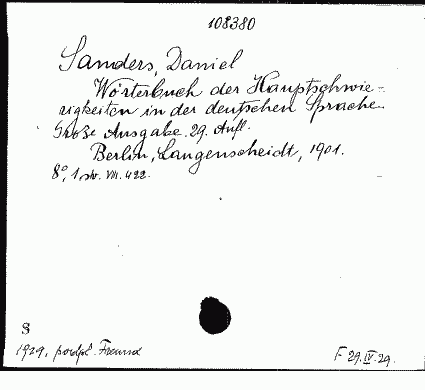 108380
Sanders, Daniel
Wörterbuch der Hauptschwie-
rigkeiten in der deutschen Sprache.
Große Ausgabe. 29. Aufl.
Berlin, Langenscheidt, 1901.
8°, 1 str. VIII. 422.
S
1929,
F 29.IV.29.